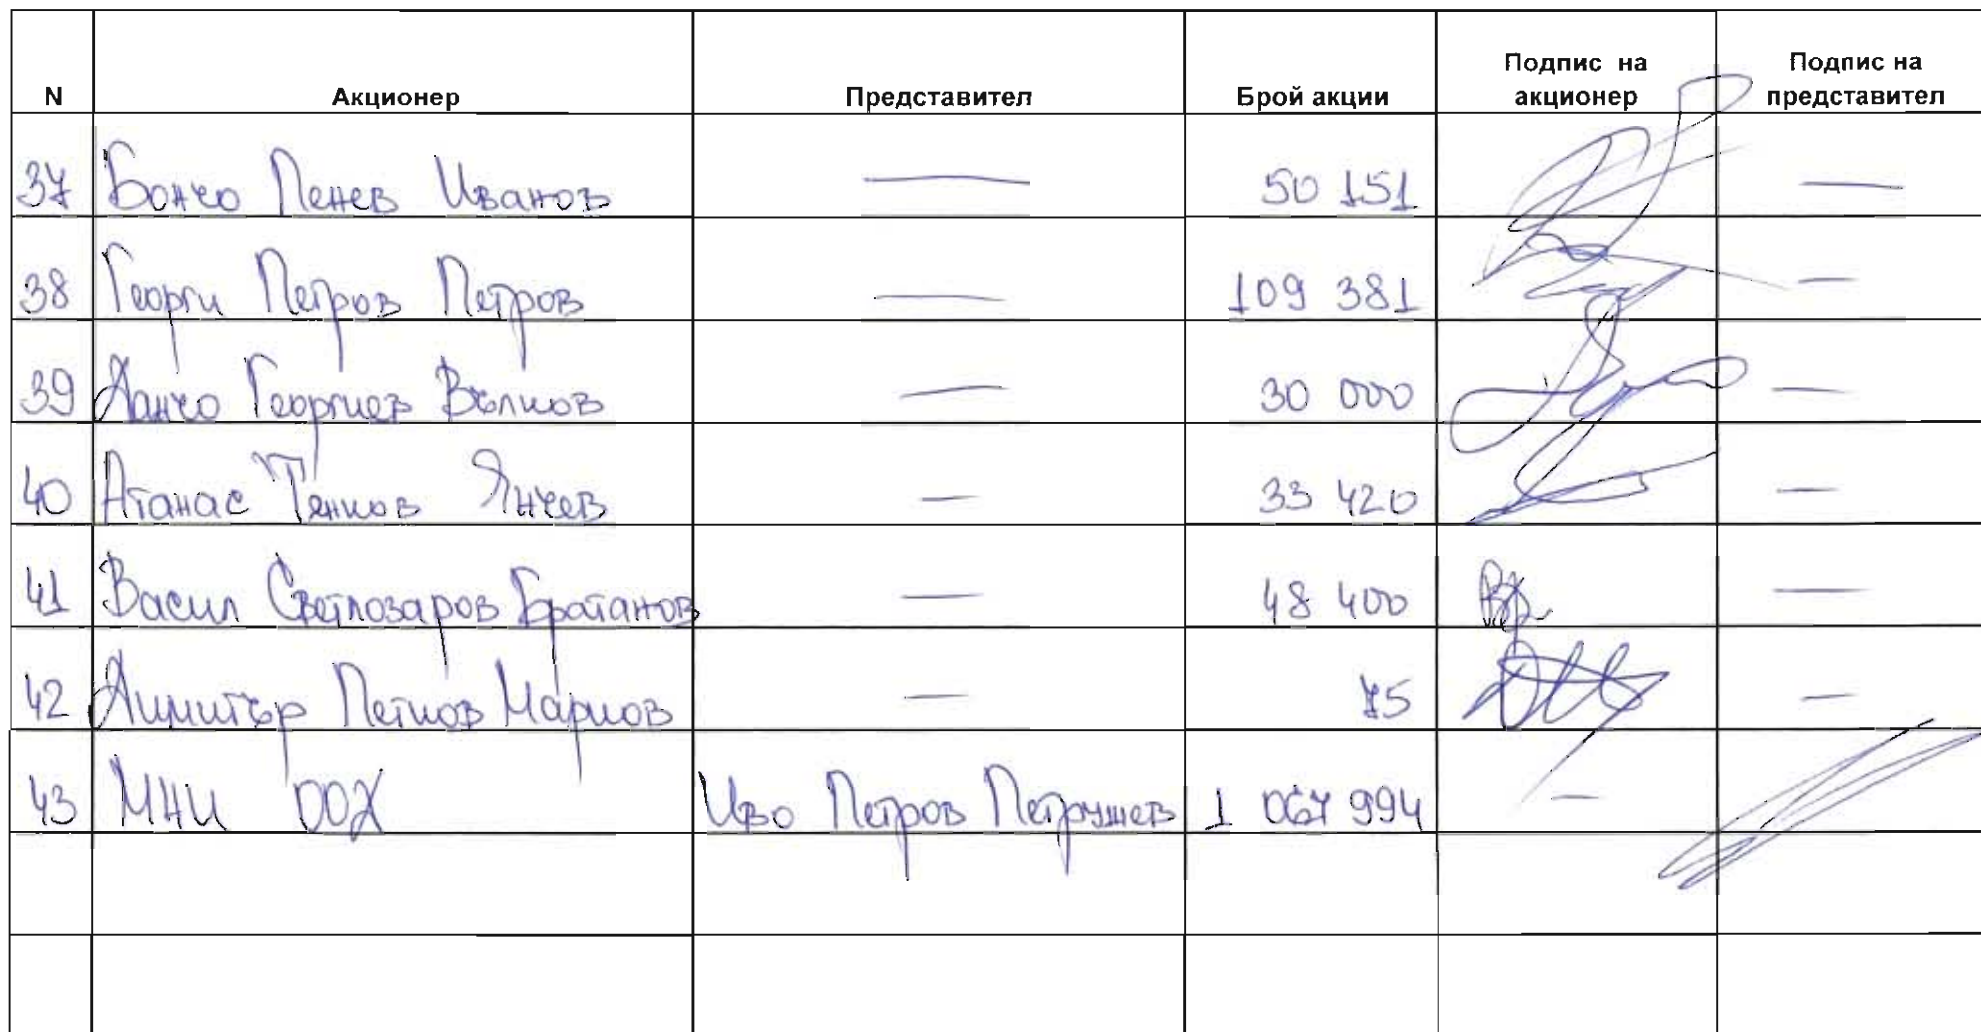 N Акционер Представител Брой акции Подпис на акционер Подпис на представител
37 Бончо Пенев Иванов — 50 151 —
38 Георги Петров Петров — 109 381 —
39 Данчо Георгиев Вълков — 30 000 —
40 Атанас Тенков Янчев — 33 420 —
41 Васил Светлозаров Братанов — 48 400 —
42 Димитър Петков Марков — 75 —
43 МНИ ООД Иво Петров Петрушев 1 067 994 —